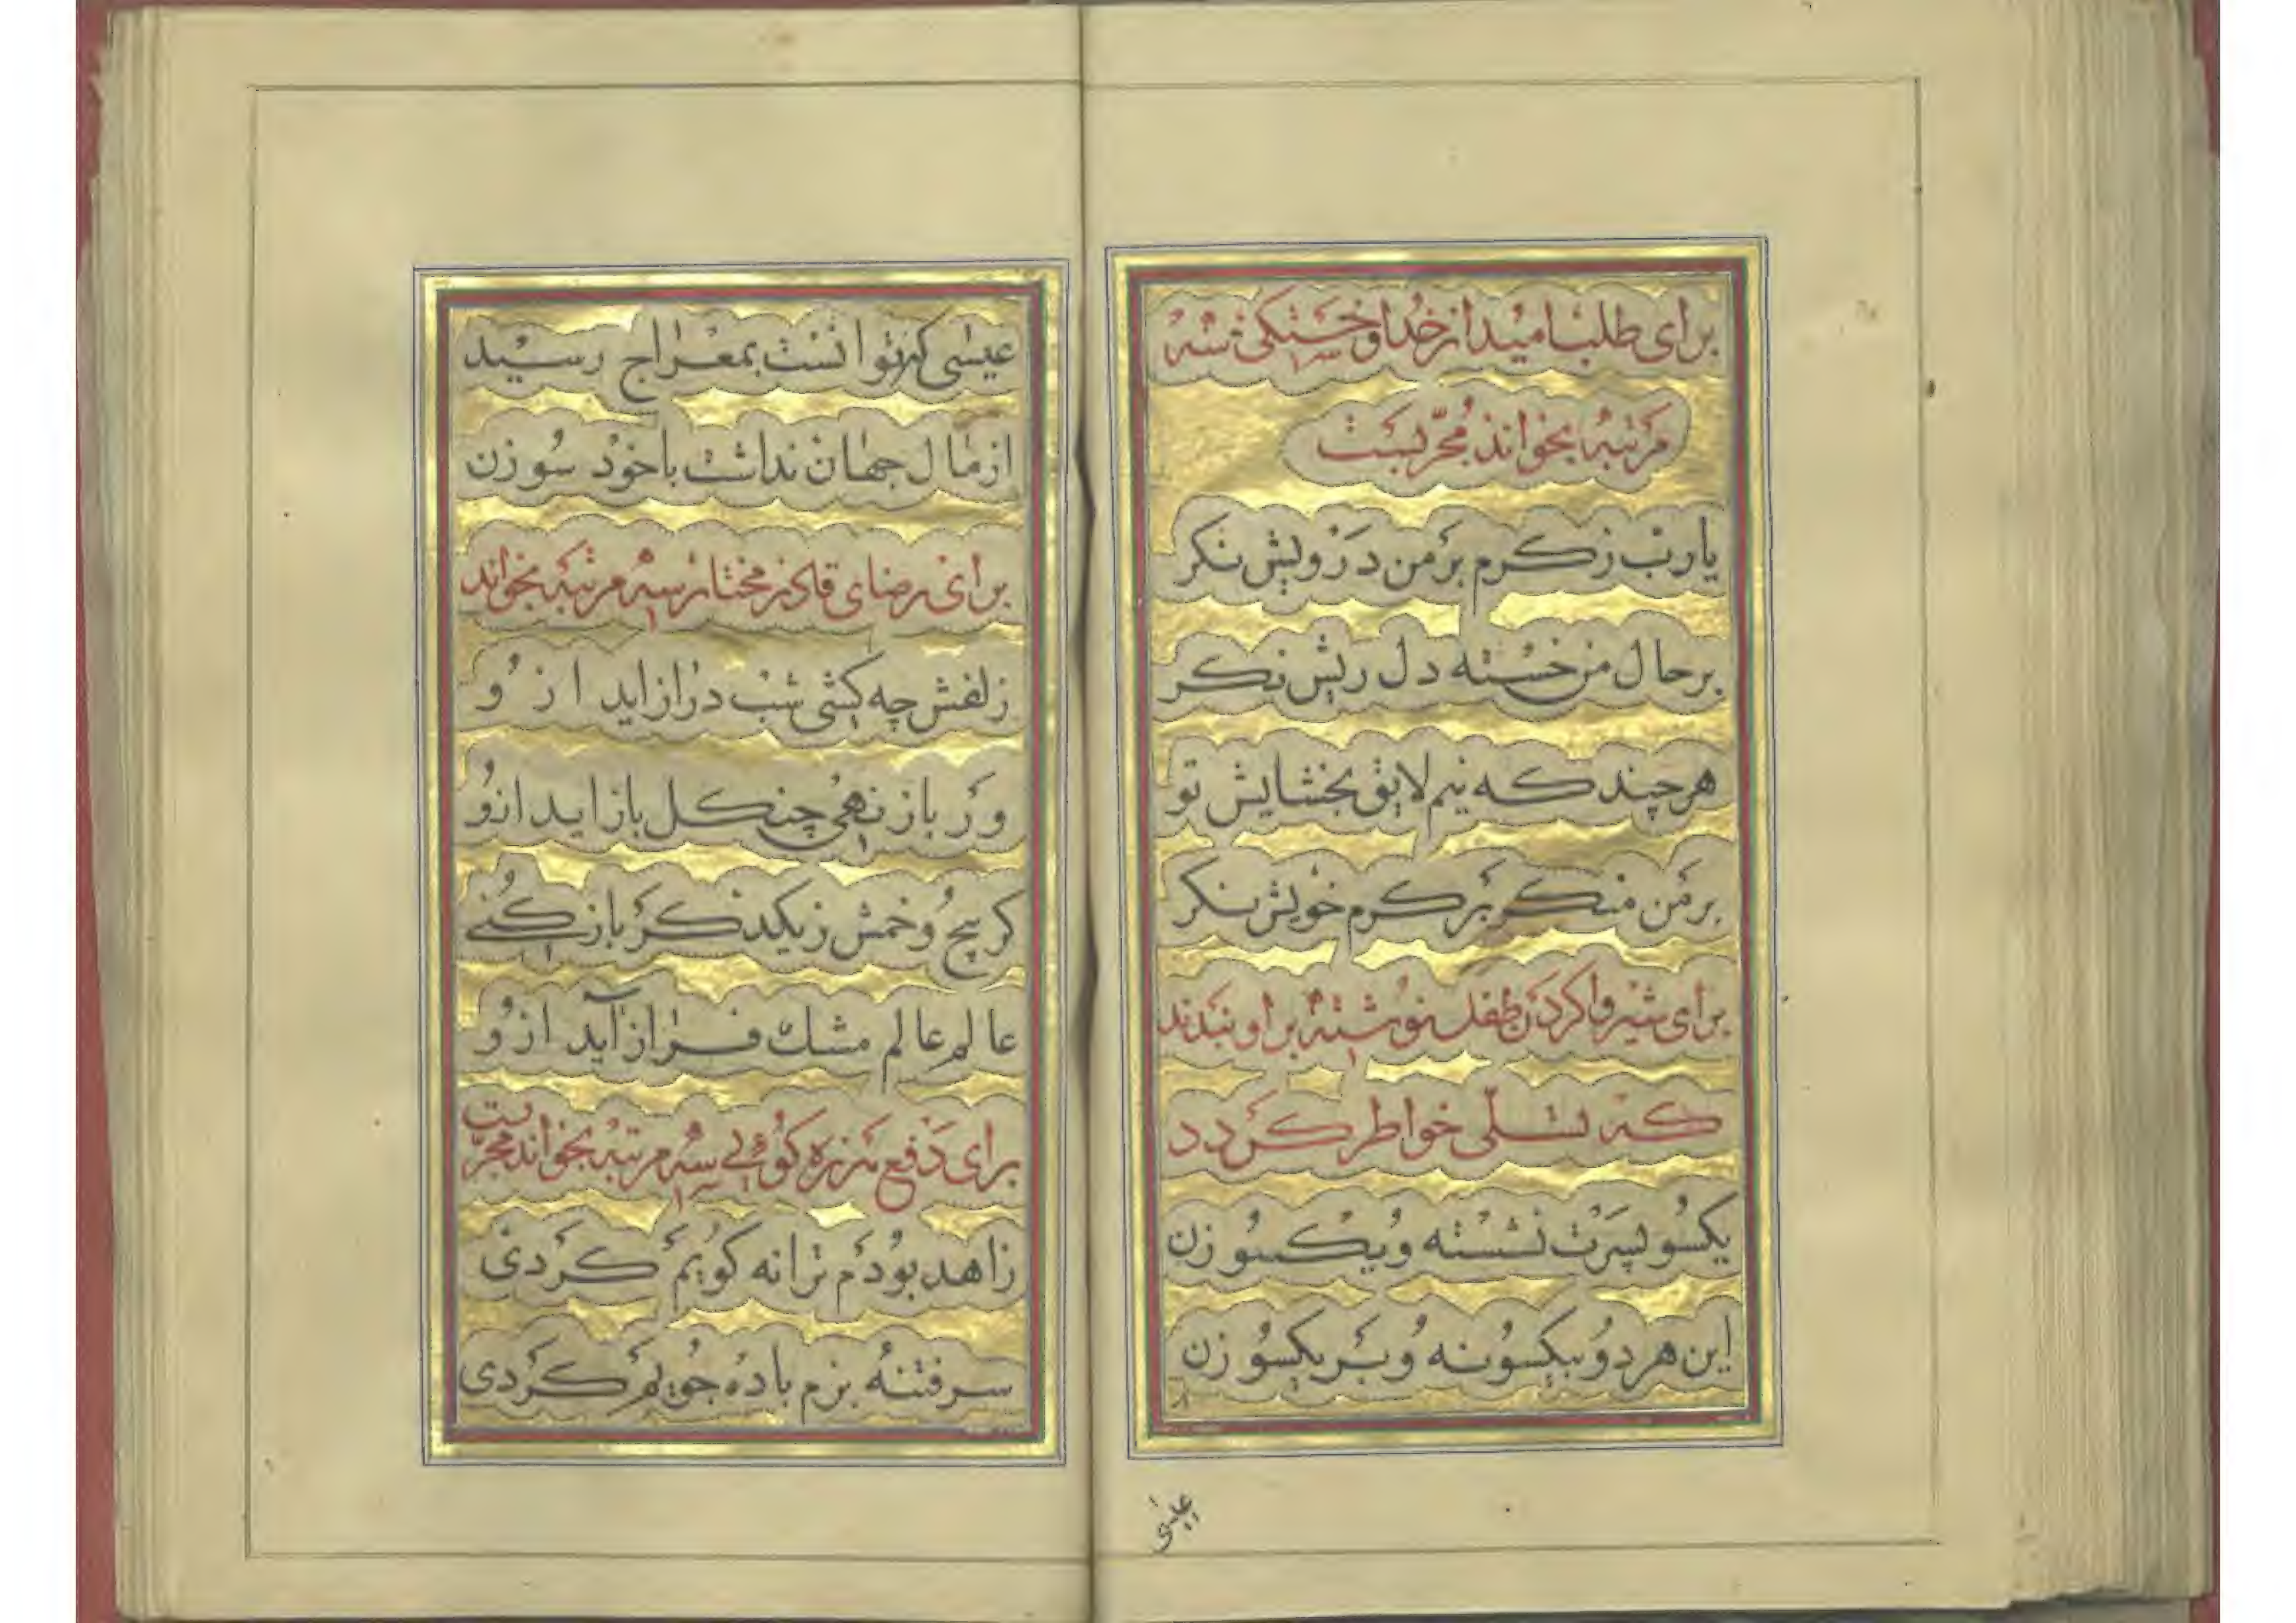 برای طلب امید از خدا و خستگی سه
مرتبه بخواند مجربست
یارب ز کرم بر من درویش نکر
بر حال من خسته دل ریش نکر
هر چند که نیم لایق بخشایش تو
بر من منکر بر کرم خویش نکر
برای شیر وا کردن طفل نوشته بر او بندند
که تسلّی خواطر کردد
یکسو پسرت نشسته و یکسو زن
این هر دو بیکسو نه و بر یکسو زن
عیسی
عیسی که توانست بمعراج رسید
از مال جهان نداشت با خود سوزن
برای رضای قادر مختار سه مرتبه بخواند
زلفش چه کشی شب دراز اید ازو
ور باز نهی چنکل باز اید ازو
کر پیچ و خمش ز یکدکر باز کنی
عالم عالم مشک فراز آید ازو
برای دفع هرزه کوئی سه مرتبه بخواند مجربست
زاهد بودم ترانه کویم کردی
سر فتنهٔ بزم باده جویم کردی